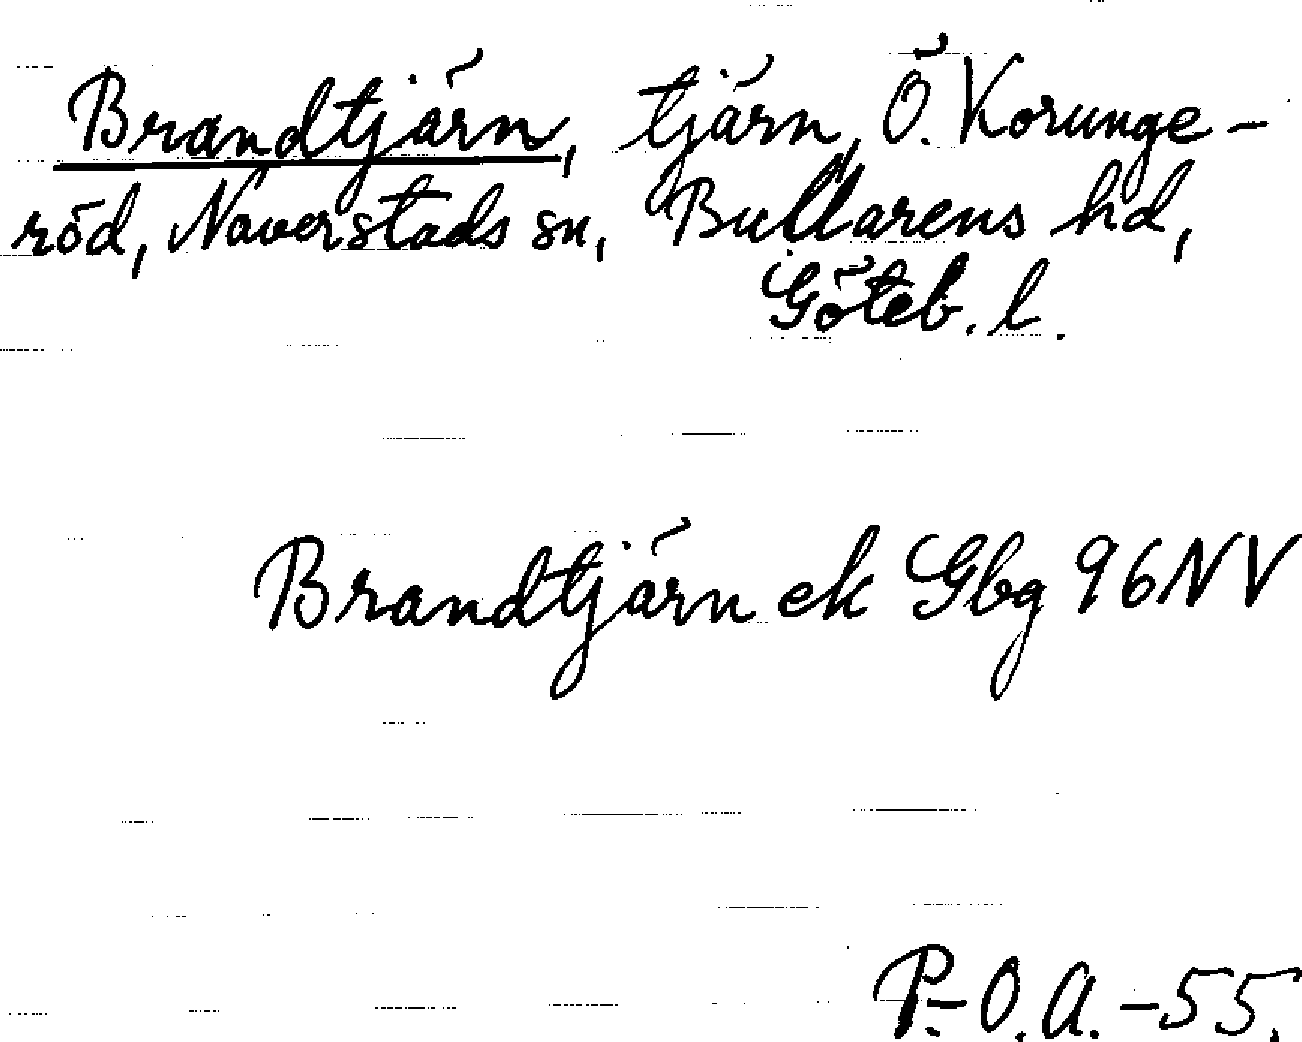 Brandtjärn, tjärn, Ö. Korunge-
röd, Naverstads sn, Bullarens hd,
Göteb. l.
Brandtjärn ek Gbg 96NV
P.-O.A.-55.